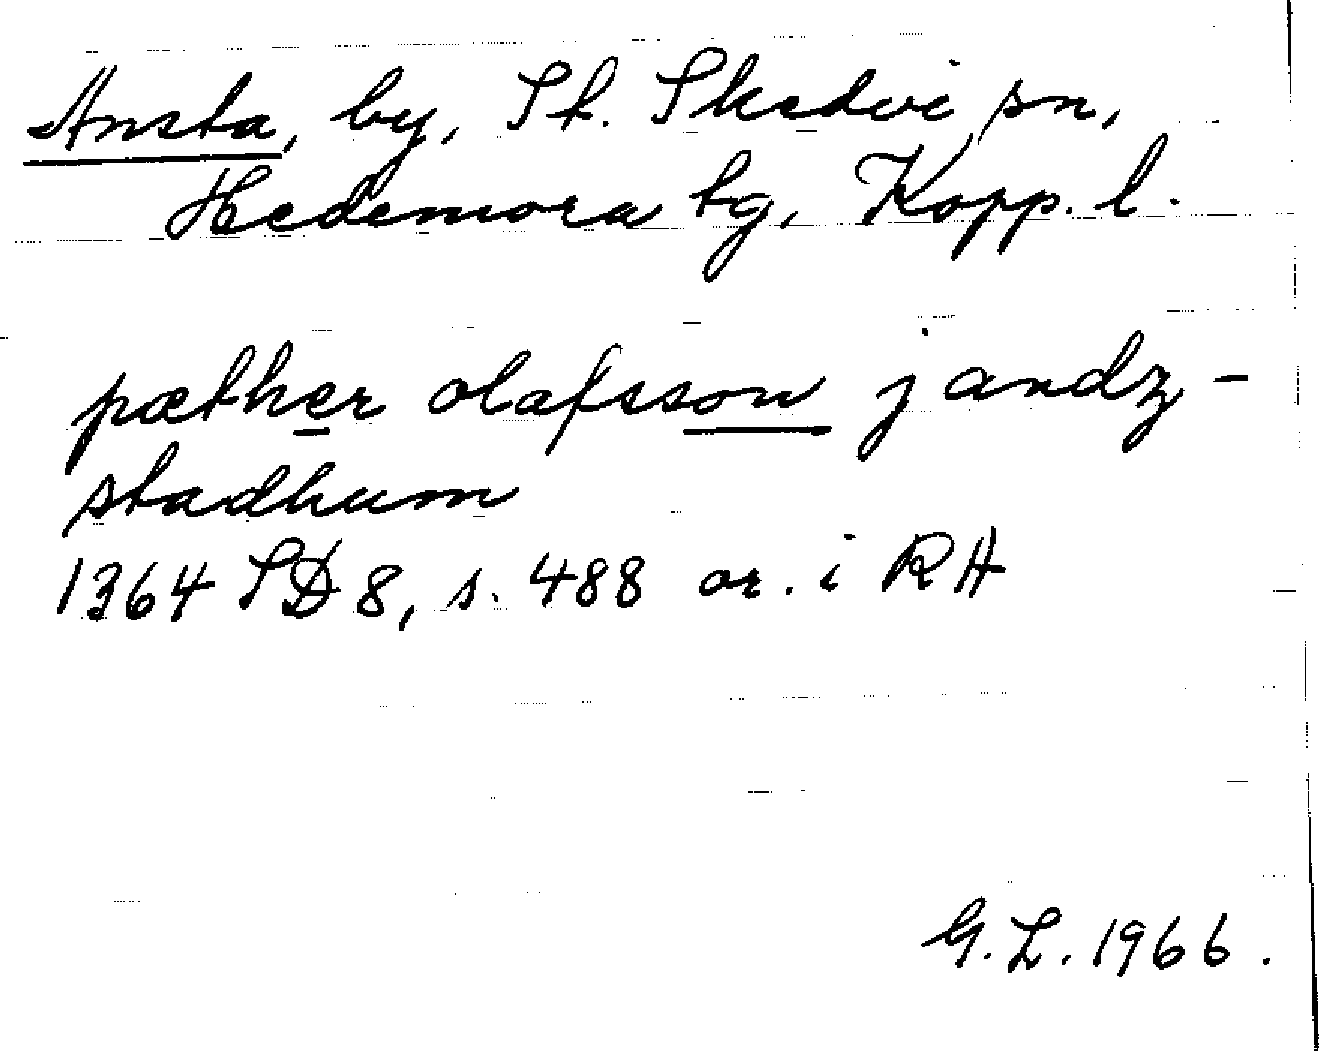 Ansta, by, St. Skedvi sn,
Hedemora tg, Kopp. l.
pæther olafsson j andz-
stadhum
1364 SD 8, s. 488 or. i RA
G. L. 1966.